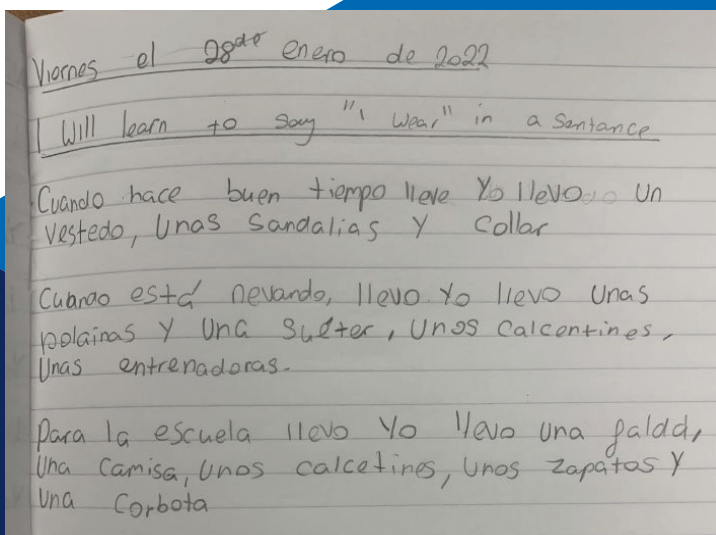 Viernes el 28 de enero de 2022
I Will learn to say "I wear" in a Sentance
Cuando hace buen tiempo lleve Yo llevo un
vestedo, Unas Sandalias Y Collar
Cuando está nevando, llevo Yo llevo Unas
polainas Y Una Suéter, Unos Calcentines,
Unas entrenadoras.
Para la escuela llevo Yo llevo una falda,
Una Camisa, Unos calcetines, Unos Zapatos Y
Una Corbota